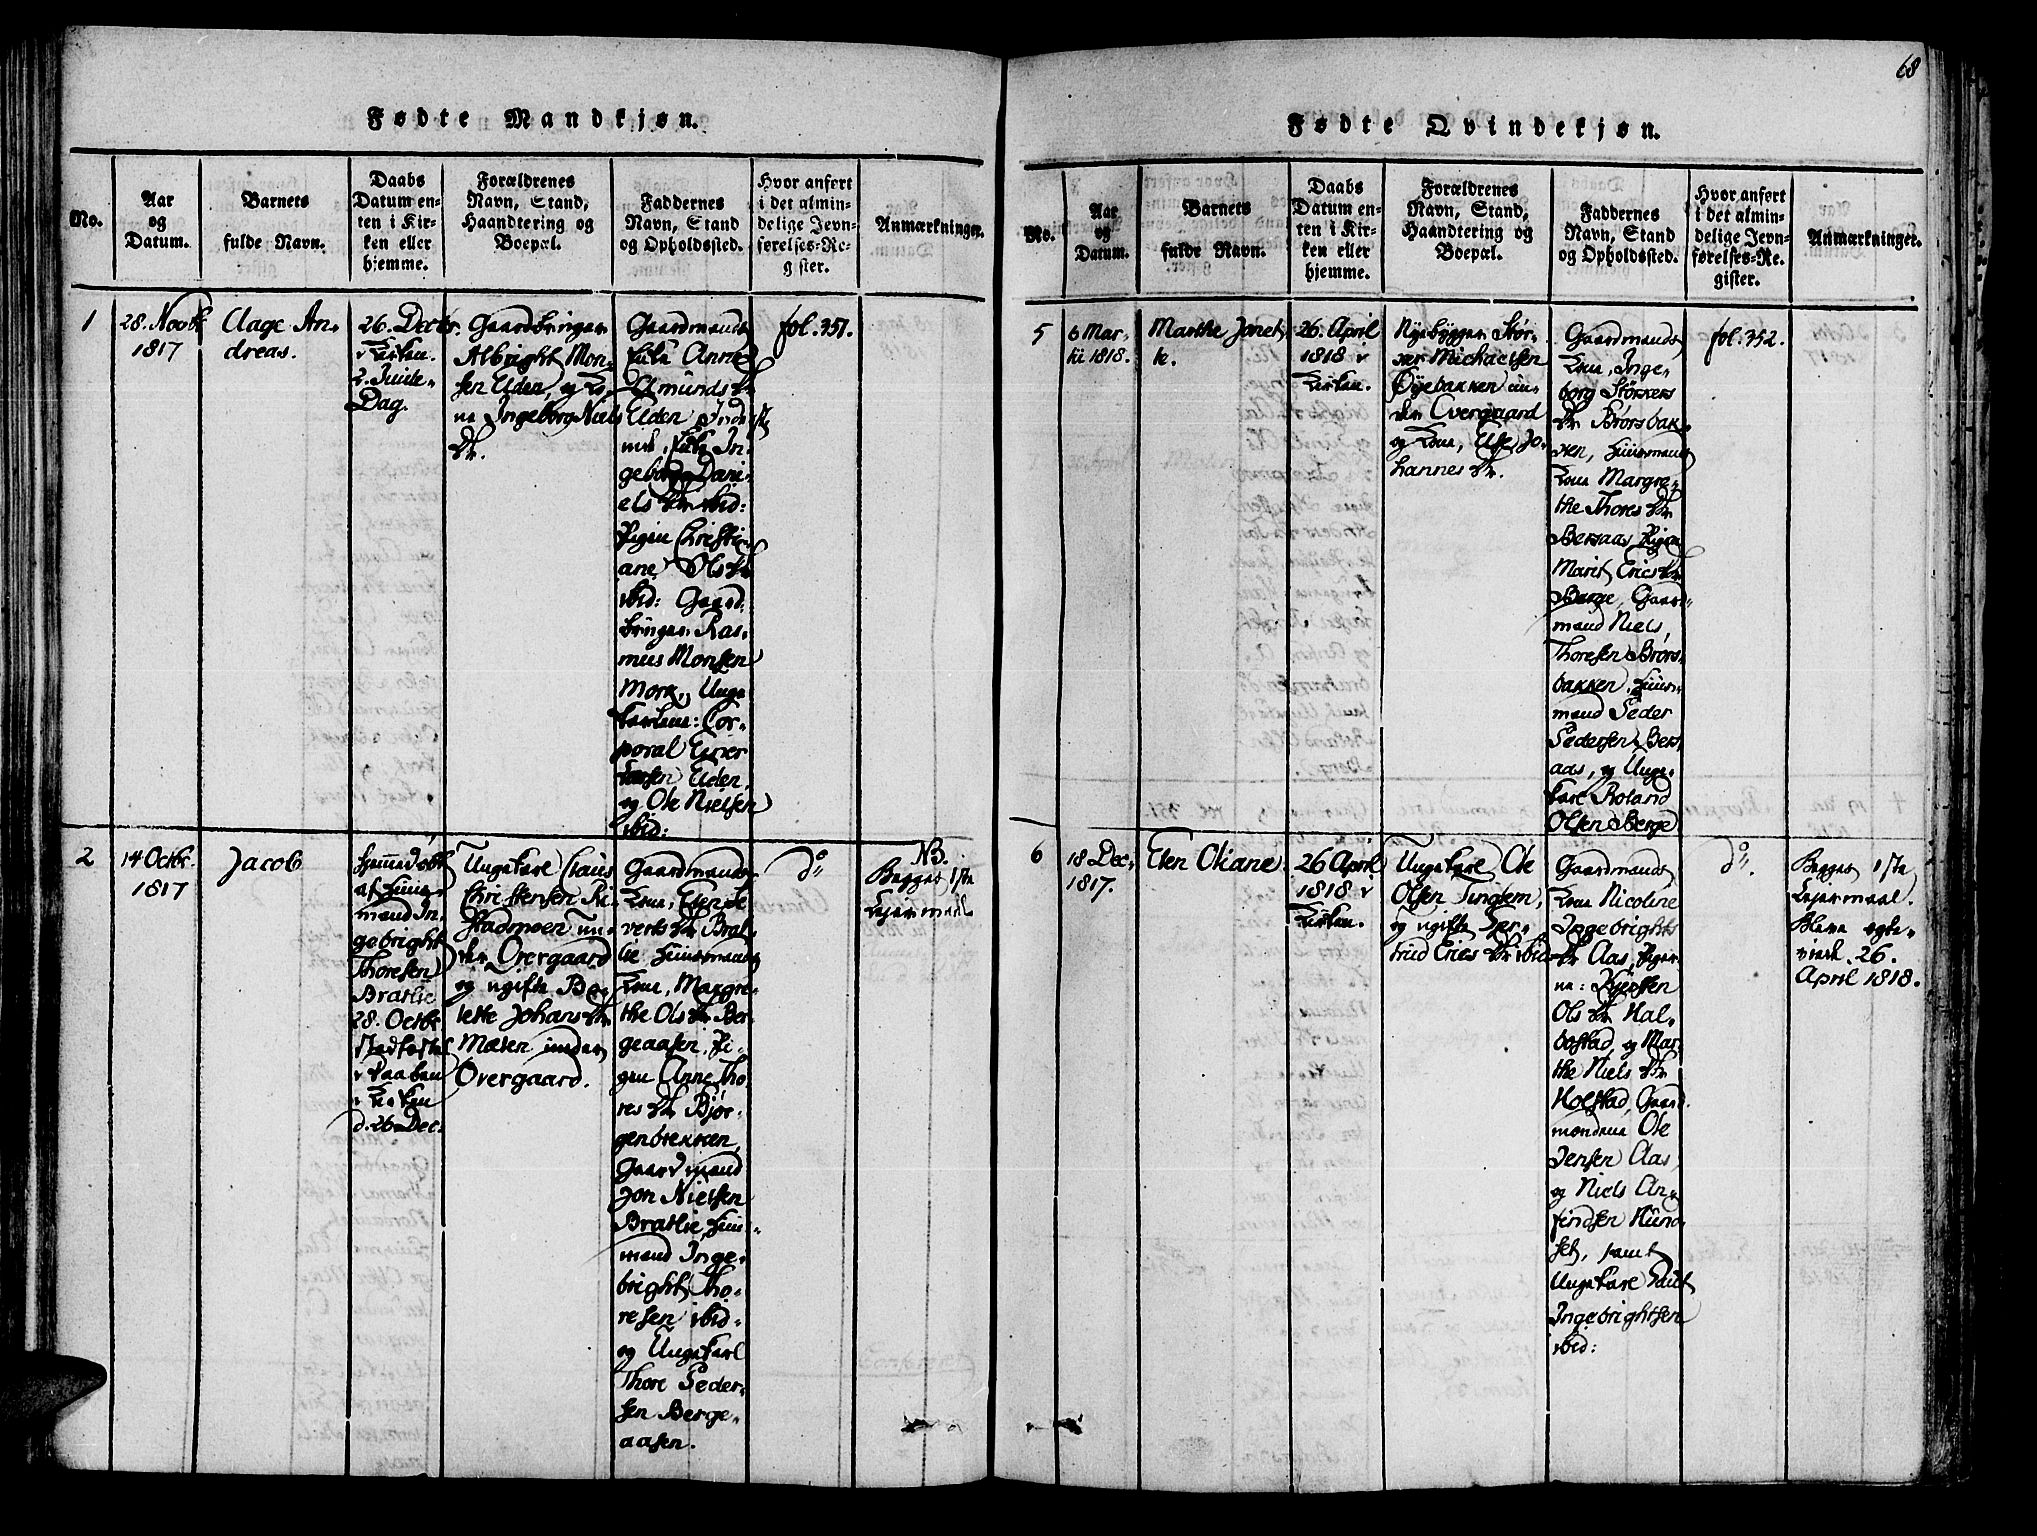 68
Fødte Mandkjøn.
No.
Aar
og
Datum.
Barnets
fulde Navn.
Daabs
Datum en-
ten i Kir-
ken eller
hjemme.
Forældrenes
Navn, Stand,
Haandtering og
Boepæl.
Faddernes
Navn, Stand
og Opholdssted.
Hvor anført
i det almin-
delige Jevn-
førelses-Re-
gister.
Anmærkninger.
1
28. Novbr.
1817
Aage An-
dreas.
26. Decbr.
i Kirken.
2. Juule-
Dag.
Albright Mon-
sen Elden, og Ko-
ne Ingeborg Niels
Dr.
Gaardmands
Anne
Amunds Dr
Elden
In-
geborg Dani-
els Dr ibid:
Pigen Christi-
ane Ols Dr
ibid: Gaard-
bruger Ras-
mus Monsen
Mork, Unge-
karlene: Cor-
poral Ener
Elden,
og Ole Nielsen
ibid:
fol. 351.
2
14 Octbr.
1817
Jacob
af Huus-
mand In-
gebright
Thoresen
Bratlie
28. Octbr
stadfæstet
i Daaben
i Kirken
d. 26 Dec.
Ungekarl Claus
Christensen Ri-
stadmoen un-
der Overgaard
og ugifte Be-
lette Johans Dr
Mælen under
Overgaard.
Gaardmands
Kone, Elen Si-
verts Dr Brat-
lie, Huusmands
Kone, Margre-
the Ols Dr Ber-
geaasen, Pi-
gen Anne Tho-
res Dr Bjør-
genbrekken,
Gaardmand
Jon Nielsen
Bratlie, Huus-
mand Inge-
bright Tho-
resen ibid-
og Ungekarl
Thore Peder-
sen Berge-
aasen.
do
NB.
Begges 1ste
Leiermaal
Fødte Qvindekjøn.
No.
Aar
og
Datum.
Barnets
fulde Navn.
Daabs
Datum en-
ten i Kir-
ken eller
hjemme.
Forældrenes
Navn, Stand,
Haandtering og
Boepæl.
Faddernes
Navn, Stand
og Opholdssted.
Hvor anført
i det almin-
delige Jevn-
førelses-Re-
gister.
Anmærkninger.
5
6 Mar-
tii 1818.
Marthe Janet-
te.
26. April
1818 i
Kirken.
Nyebygger Stør-
ker Michaelsen
Øyebakken un-
der Overgaard
og Kone, Else Jo-
hannes Dr.
Gaardmands
Kone, Inge-
borg Størkers
Dr Brørsbak-
ken, Huusmands
Kone Margre-
the Thores Dr
Bersaas, Pigen
Marit Erics Dr
Berge, Gaard-
mand Niels
Thoresen Brørs-
bakken, Huus-
mand Peder
Pedersen Bers-
aas, og Unge-
karl Roland
Olsen Berge
fol. 352.
6
18 Dec.
1817.
Elen Oliane
26 April
1818 i
Kirken.
Ungekarl Ole
Olsen Tinglem,
og ugifte Ger-
trud Erics Dr ibid
Gaardmands
Kone Nicoline
Ingebrights
Dr Aas, Piger-
ne: Kjersten
Ols Dr Hal-
bostad, og Mar-
the Niels Dr
Holstad, Gaard-
mændene Ole
Jensen Aas
og Niels An-
findsen Hund-
set, samt
Ungekarl Paul
Ingebrightsen
ibid:
do
Begges 1ste
Leiermaal.
Bleve egte-
viede 26.
April 1818.